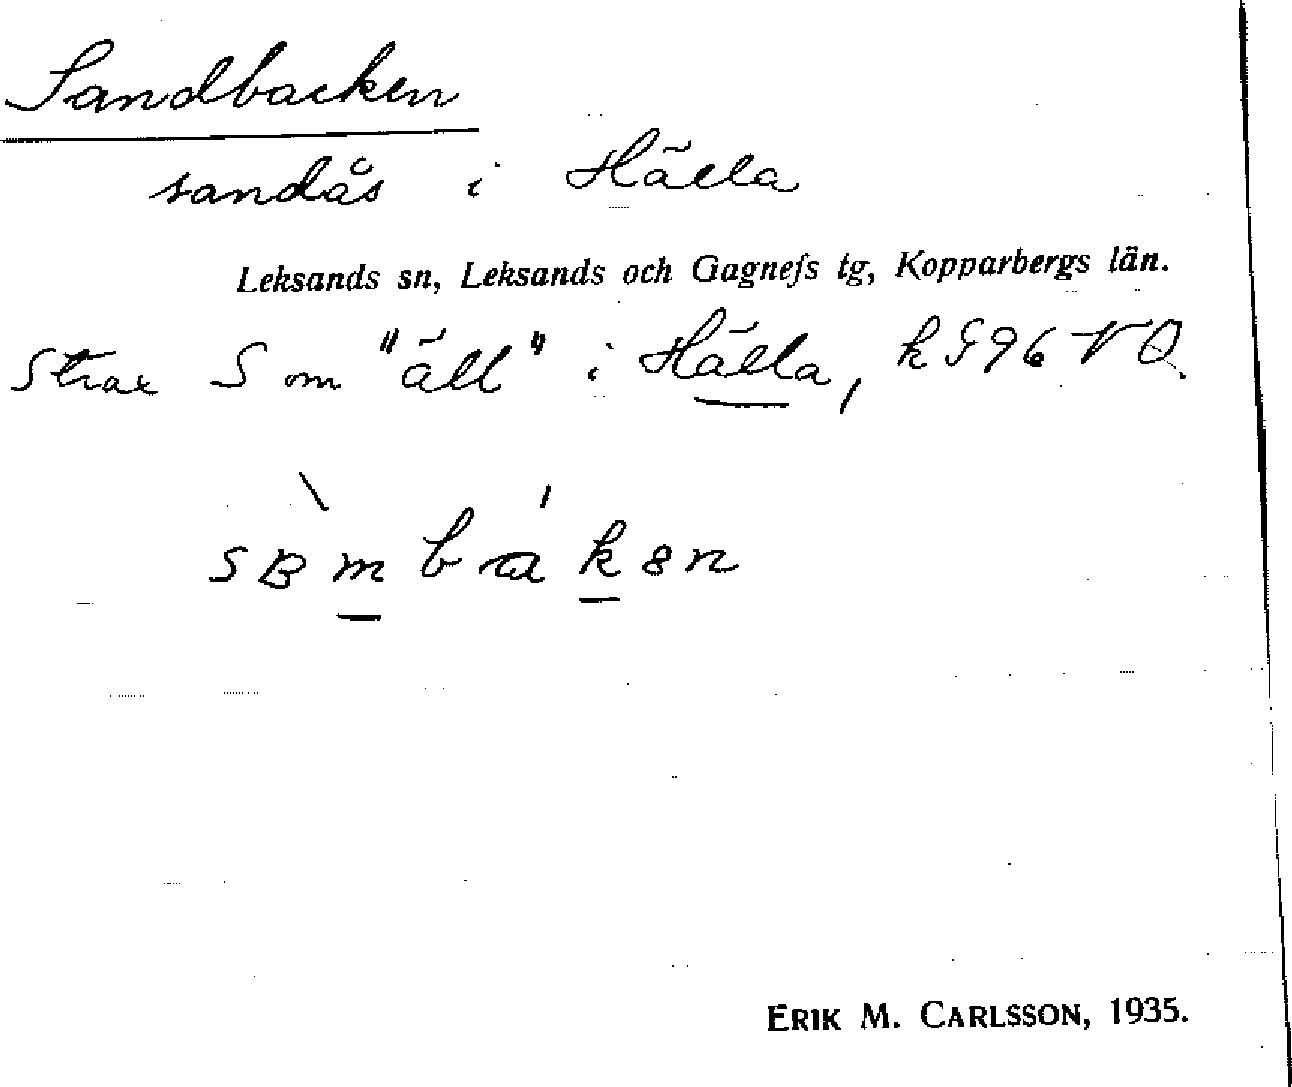 Sandbacken
sandås i Hälla
Leksands sn, Leksands och Gagnefs tg, Kopparbergs län.
Strax S om "äll" i Hälla, k 996 NO.
ERIK M. CARLSSON, 1935.